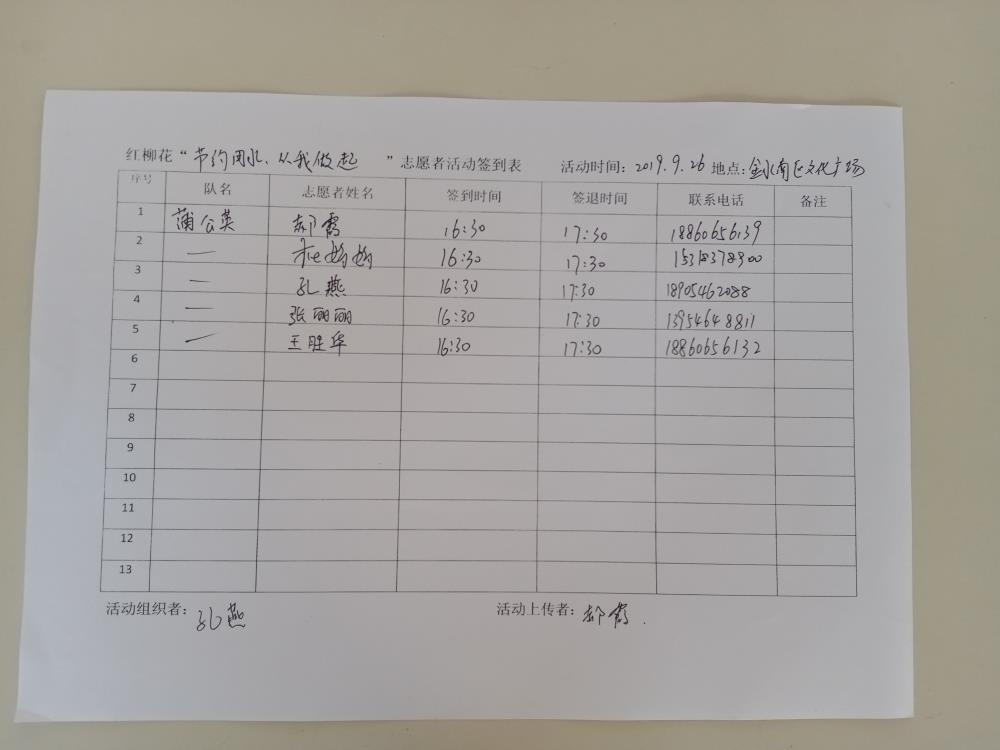 红柳花“节约用水、从我做起”志愿者活动签到表 活动时间：2019.9.26 地点：金水南区文化广场
序号 队名 志愿者姓名 签到时间 签退时间 联系电话 备注
1 蒲公英 郝霞 16:30 17:30 18860656139
2 — 杜娟娟 16:30 17:30
3 — 孔燕 16:30 17:30 18905462088
4 — 张丽丽 16:30 17:30 13954648811
5 — 王胜华 16:30 17:30 18860656132
6
7
8
9
10
11
12
13
活动组织者：孔燕 活动上传者：郝霞.